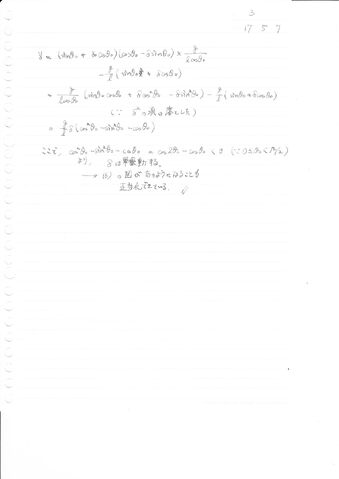 3
17 5 7
δ̈ = (sinθ₀ + δcosθ₀)(cosθ₀ - δsinθ₀) × g/(lcosθ₀)
- g/l (sinθ₀ + δcosθ₀)
= g/(lcosθ₀) (sinθ₀cosθ₀ + δcos²θ₀ - δsin²θ₀) - g/l (sinθ₀ + δcosθ₀)
(∵ δ²の項は落とした)
= g/l δ (cos²θ₀ - sin²θ₀ - cosθ₀)
ここで, cos²θ₀ - sin²θ₀ - cosθ₀ = cos2θ₀ - cosθ₀ < 0
より, δは単振動する。
正当化できている。